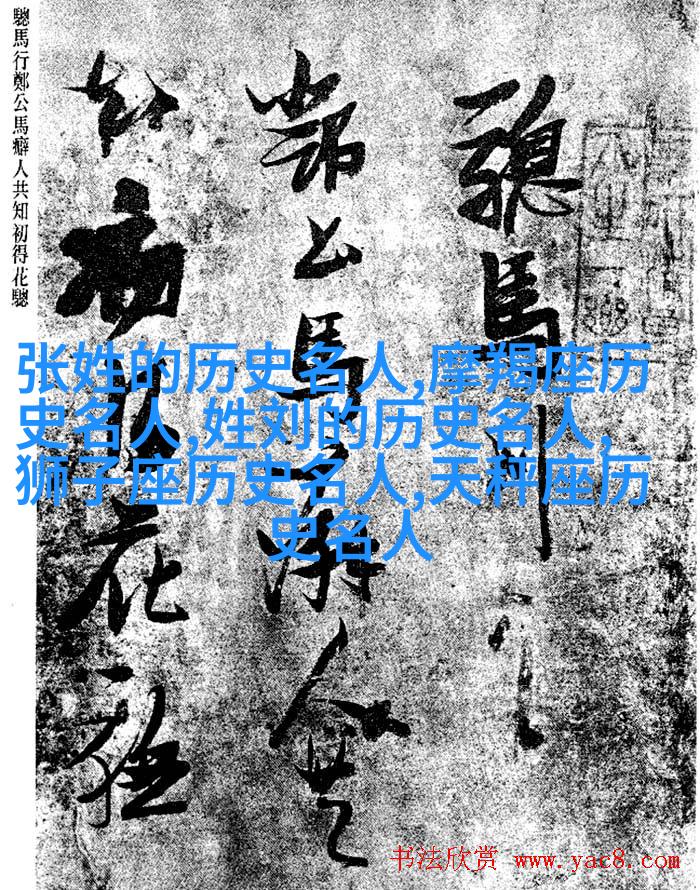 驄馬行
鄭公馬癖人共
知初得花驄
驄馬行鄭公馬癖人共知初得花驄
张姓的历史名人,摩羯座历
史名人,姓刘的历史名人,
狮子座历史名人,天秤座历
史名人
书法欣赏 www.yac8.com